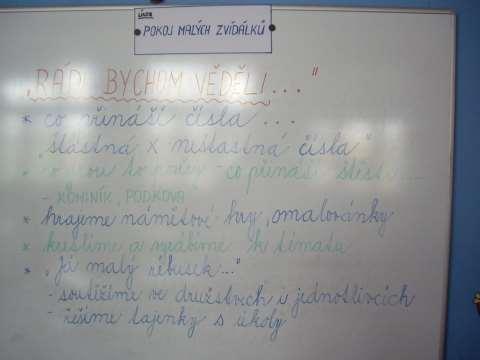 POKOJ MALÝCH ZVÍDÁLKŮ
„RÁDI BYCHOM VĚDĚLI..."
* co přináší čísla ...
šťastná x nešťastná čísla"
- co přináší štěstí ...
- KOMINÍK, PODKOVA
* hrajeme námětové hry, omalovánky
* kreslíme a vyrábíme k tématu
* „Já malý rébusek..."
- soutěžíme ve družstvech i jednotlivcích
- řešíme tajenky s úkoly